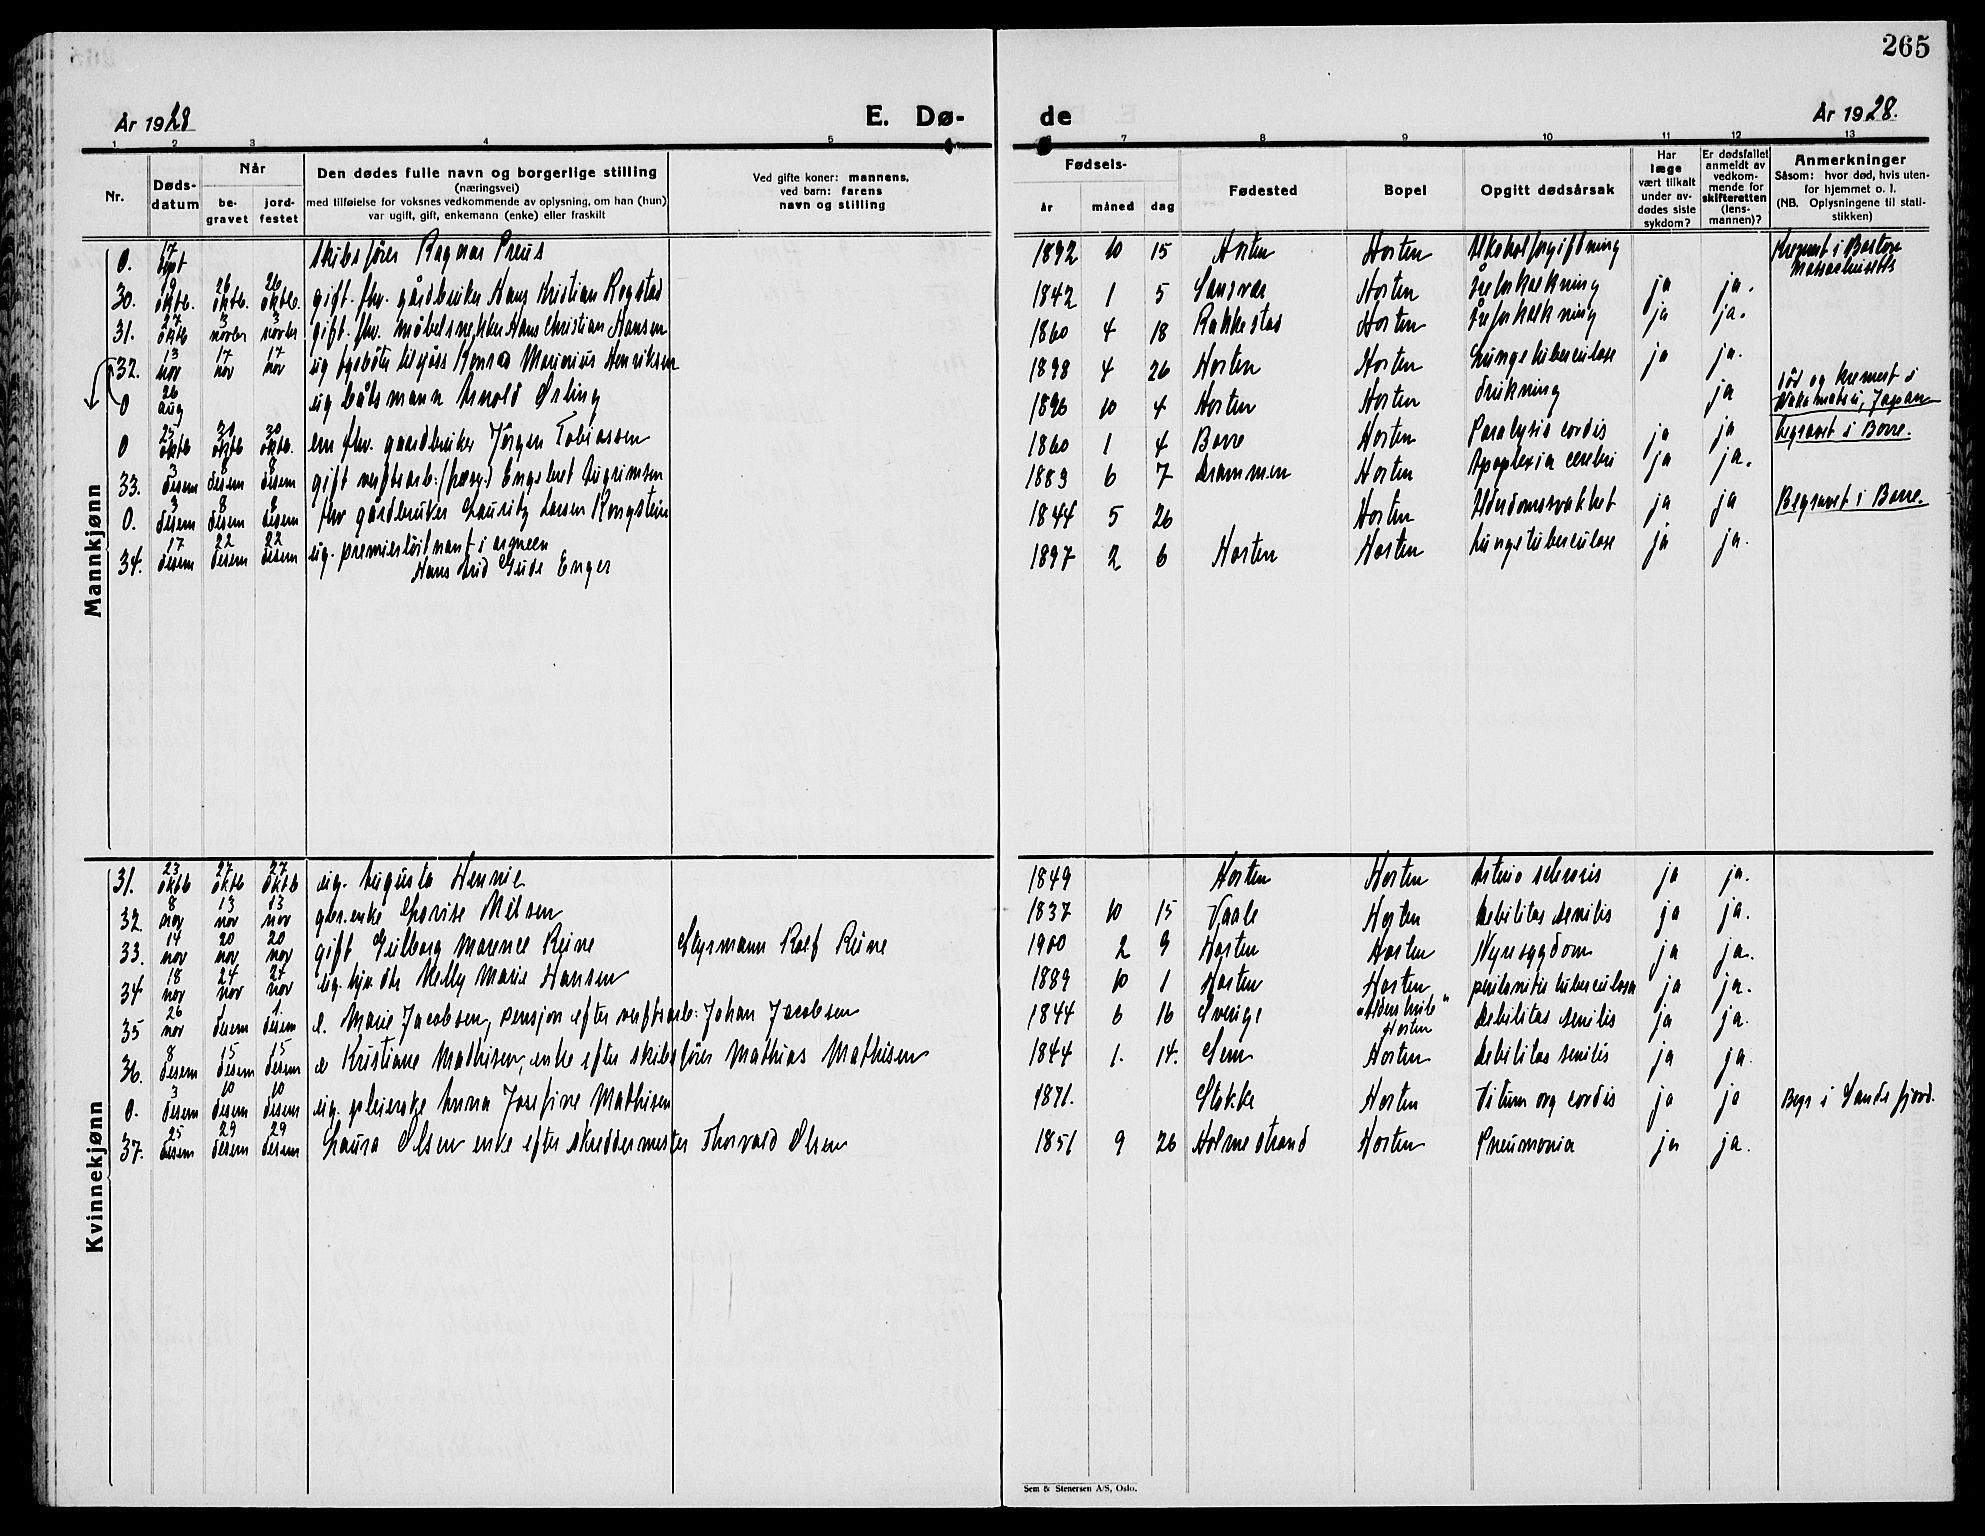 265
År 1928
E. Dø-
de
År 1928.
1 2 3 4 5 6 7 8 9 10 11 12 13
Nr.
Døds-
datum
Når
be-
gravet
jord-
festet
Den dødes fulle navn og borgerlige stilling
(næringsvei)
med tilføielse for voksnes vedkommende av oplysning, om han (hun)
var ugift, gift, enkemann (enke) eller fraskilt
Ved gifte koner: mannens,
ved barn: farens
navn og stilling
Fødsels-
år
måned
dag
Fødested
Bopel
Opgitt dødsårsak
Har
læge
vært tilkalt
under av-
dødes siste
sykdom?
Er dødsfallet
anmeldt av
vedkom-
mende for
skifteretten
(lens-
mannen)?
Anmerkninger
Såsom: hvor død, hvis uten-
for hjemmet o. l.
(NB. Oplysningene til stati-
stikken)
Mannkjønn
0. 17 sept skibsfører Ragnar Preus 1892 10 15 Horten Horten Alkoholforgiftning Kremert i Boston Massachusetts
30. 19 oktb. 26 oktb. 26 oktb. gift. fhv. gårdbruker Hans Kristian Rogstad 1842 1 5 Sansvær Horten Åreforkalkning ja ja.
31. 27 oktb 3 novbr 3 novbr gift. fhv. møbelsnekker Hans Christian Hansen 1860 4 18 Rakkestad Horten Åreforkalkning ja ja.
32. 13 nov 17 nov 17 nov ug. tilsjøss Konrad Marinius Henriksen 1898 4 26 Horten Horten Lungetuberculose ja ja.
0 26 aug ug båtsmann Arnold Ørling 1896 10 4 Horten Horten drukning ja død og kremert i Wakamatsu, Japan
0 25 oktb 30 oktb 30 oktb. em fhv. gaardbruker Jörgen Tobiassen 1860 1 4 Borre Horten Paralysis cordis ja ja begravet i Borre.
33. 3 desem 8 desem 8 desem gift verftsarb. Engebret 1883 6 7 Drammen Horten Apoplexia cerebri ja ja.
0. 3 desem 8 desem 8 desem fhv gårdbruker Lauritz Larsen Kongstein 1844 5 26 Horten Alderdomssvakhet ja ja Begravet i Borre.
34. 17 desem 22 desem 22 desem ug. premierløitnant i armeen
Hans Gude Enger 1897 2 6 Horten Horten Lungetuberculose ja ja.
Kvinnekjønn
31. 23 oktb 27 oktb 27 oktb ug. Augusta Hennie 1849 Horten Horten Arterio sclerosis ja ja.
32. 8 nov 13 nov 13 nov enke Lovise Nilsen 1837 10 15 Vaale Horten Debilitas senilis ja ja.
33. 14 nov 20 nov 20 nov gift Reine Styrmann Rolf Reine 1900 2 9 Horten Horten Nyresygdom ja ja.
34 18 nov 24 nov 24 nov ug. Nelly Marie Hansen 1889 10 1 Horten Horten peritonitis tuberculosa ja ja.
35 26 nov 1. desem 1. desem e. Marie Jacobsen, pensjon efter verftsarb: Johan Jacobsen 1844 6 16 Sverige "Alders hvile" Horten Debilitas senilis ja ja.
36. 8 desem 15 desem 15 desem e Kristiane Mathisen, enke efter skibsfører Mathias Mathisen 1844 1. 14. Sem Horten Debilitas senilis ja ja
0. 3 desem 10 desem 10 desem ug. pleierske Anna Josefine Mathisen 1871. Stokke Horten Vitium org cordis ja ja Begr i Sandefjord.
37. 25 desem 29 desem 29 desem Laura Olsen enke efter skreddermester Thorvald Olsen 1851 9 26 Holmestrand Horten Pneumonia ja ja.
Sem & Stenersen A/S, Oslo.